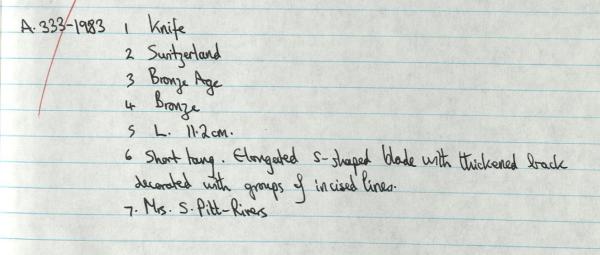 A. 333-1983 1 Knife
2 Switzerland
3 Bronze Age
4 Bronze
5 L. 11.2cm.
6 Short tang. Elongated S-shaped blade with thickened back
decorated with groups of incised lines.
7. Mrs. S. Pitt-Rivers